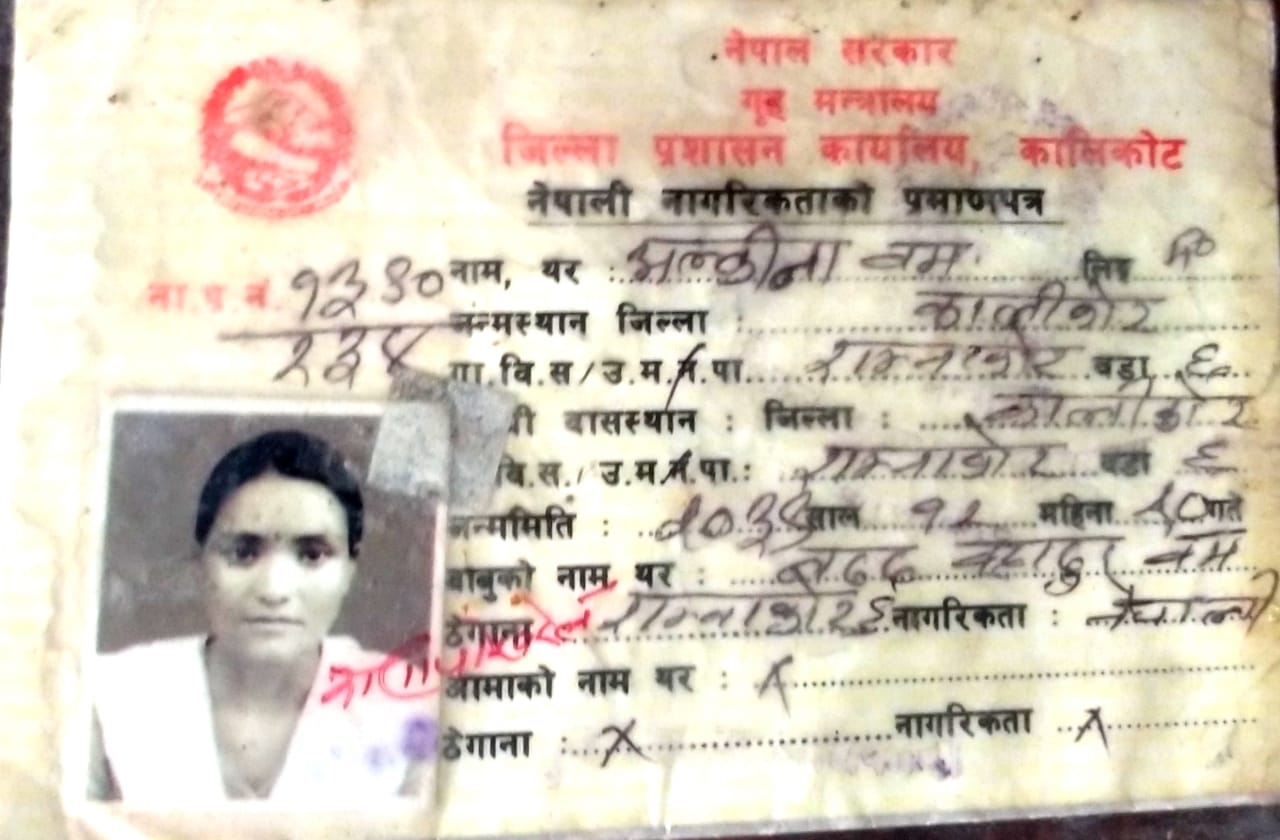 नेपाल सरकार
गृह मन्त्रालय
जिल्ला प्रशासन कार्यालय, कालिकोट
नेपाली नागरिकताको प्रमाणपत्र
ना.प्र.नं. १३९०
२३४
नाम, थर : बम लिङ्ग म०
जन्मस्थान जिल्ला : कालीकोट
गा.वि.स/उ.म.न.पा. रामनाकोट वडा ६
यी बासस्थान : जिल्ला : कालीकोट
वि.स./उ.म.न.पा.: रामनाकोट वडा ६
जन्ममिति : साल १२ महिना गते
बाबुको नाम थर : बहादुर बम
ठेगाना रामनाकोट ६ नागरिकता : नेपाली
आमाको नाम थर : X
ठेगाना : X नागरिकता X